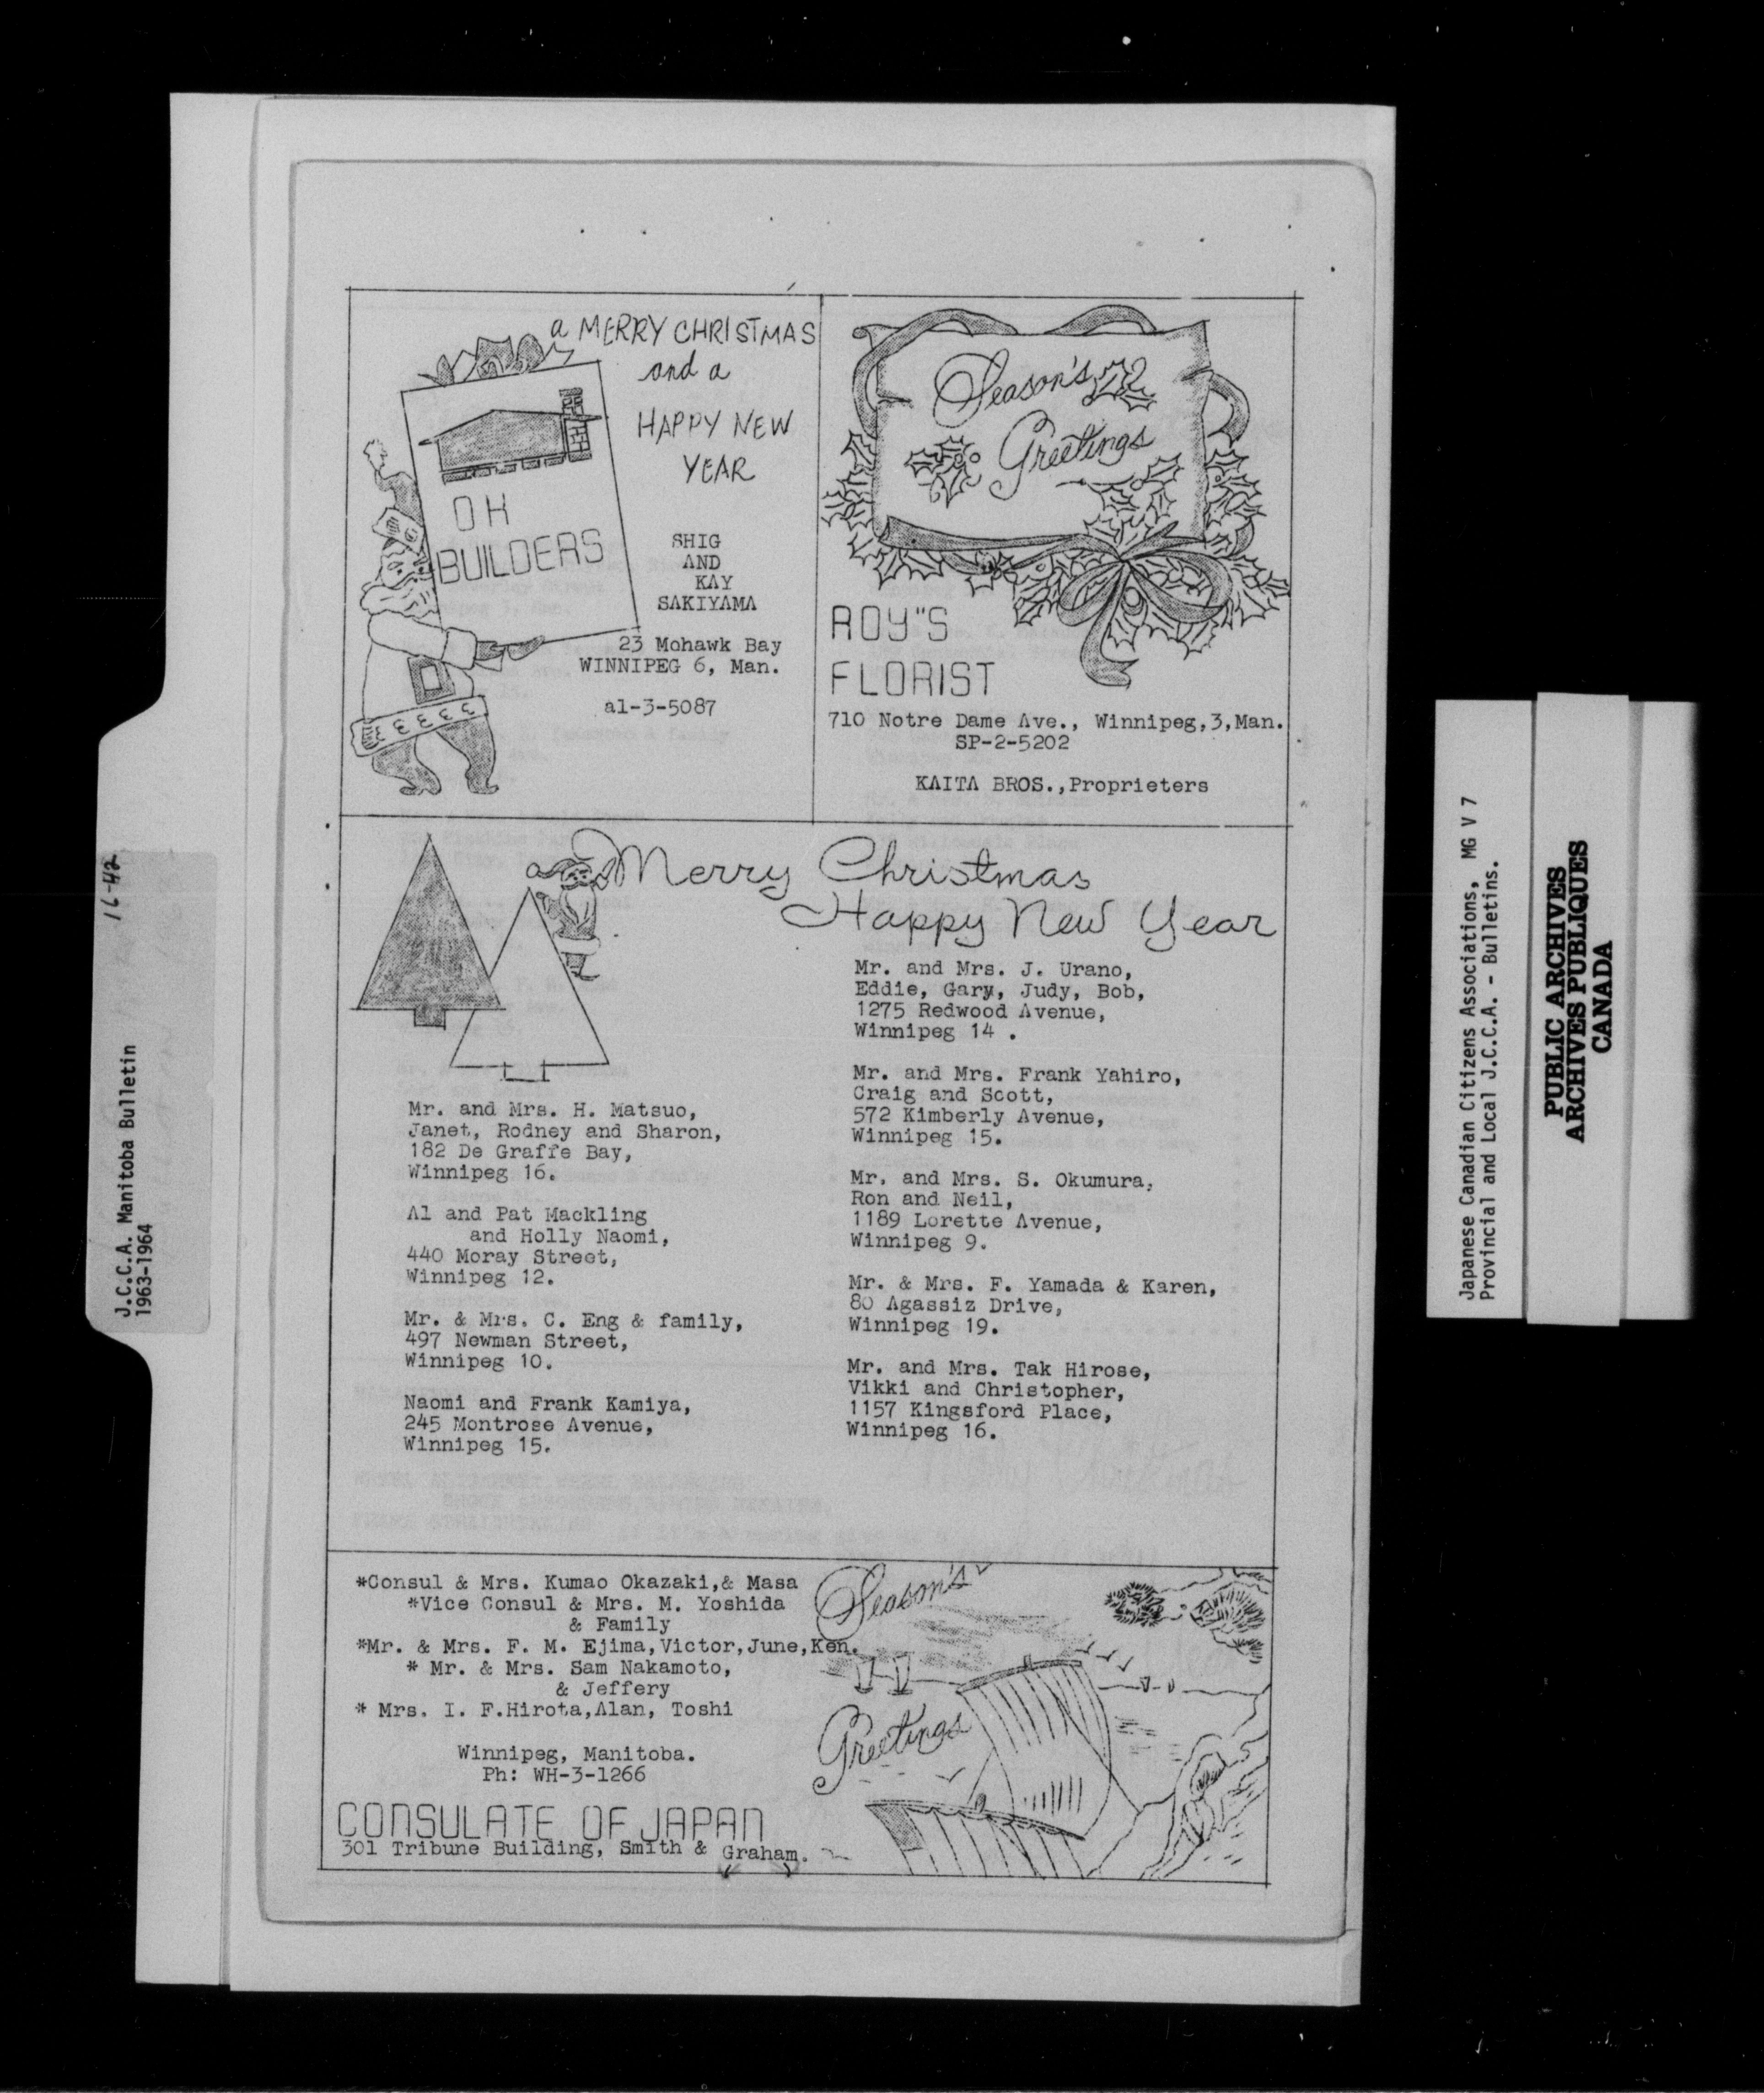 a MERRY CHRISTMAS
and a
HAPPY NEW
YEAR
OH
BUILDERS
SHIG
AND
KAY
SAKIYAMA
23 Mohawk Bay
WINNIPEG 6, Man.
al-3-5087
Season's
Greetings
ROY"S
FLORIST
710 Notre Dame Ave., Winnipeg,3,Man.
SP-2-5202
KAITA BROS.,Proprieters
Merry Christmas
Happy New Year
Mr. and Mrs. H. Matsuo,
Janet, Rodney and Sharon,
182 De Graffe Bay,
Winnipeg 16.
Al and Pat Mackling
and Holly Naomi,
440 Moray Street,
Winnipeg 12.
Mr. & Mrs. C. Eng & family,
497 Newman Street,
Winnipeg 10.
Naomi and Frank Kamiya,
245 Montrose Avenue,
Winnipeg 15.
Mr. and Mrs. J. Urano,
Eddie, Gary, Judy, Bob,
1275 Redwood Avenue,
Winnipeg 14 .
Mr. and Mrs. Frank Yahiro,
Craig and Scott,
572 Kimberly Avenue,
Winnipeg 15.
Mr. and Mrs. S. Okumura,
Ron and Neil,
1189 Lorette Avenue,
Winnipeg 9.
Mr. & Mrs. F. Yamada & Karen,
80 Agassiz Drive,
Winnipeg 19.
Mr. and Mrs. Tak Hirose,
Vikki and Christopher,
1157 Kingsford Place,
Winnipeg 16.
*Consul & Mrs. Kumao Okazaki,& Masa
*Vice Consul & Mrs. M. Yoshida
& Family
*Mr. & Mrs. F. M. Ejima,Victor,June,Ken.
* Mr. & Mrs. Sam Nakamoto,
& Jeffery
* Mrs. I. F.Hirota,Alan, Toshi
Winnipeg, Manitoba.
Ph: WH-3-1266
CONSULATE OF JAPAN
301 Tribune Building, Smith & Graham.
Season's
Greetings
16-42
J.C.C.A. Manitoba Bulletin
1963-1964
Japanese Canadian Citizens Associations, MG V 7
Provincial and Local J.C.C.A. - Bulletins.
PUBLIC ARCHIVES
ARCHIVES PUBLIQUES
CANADA